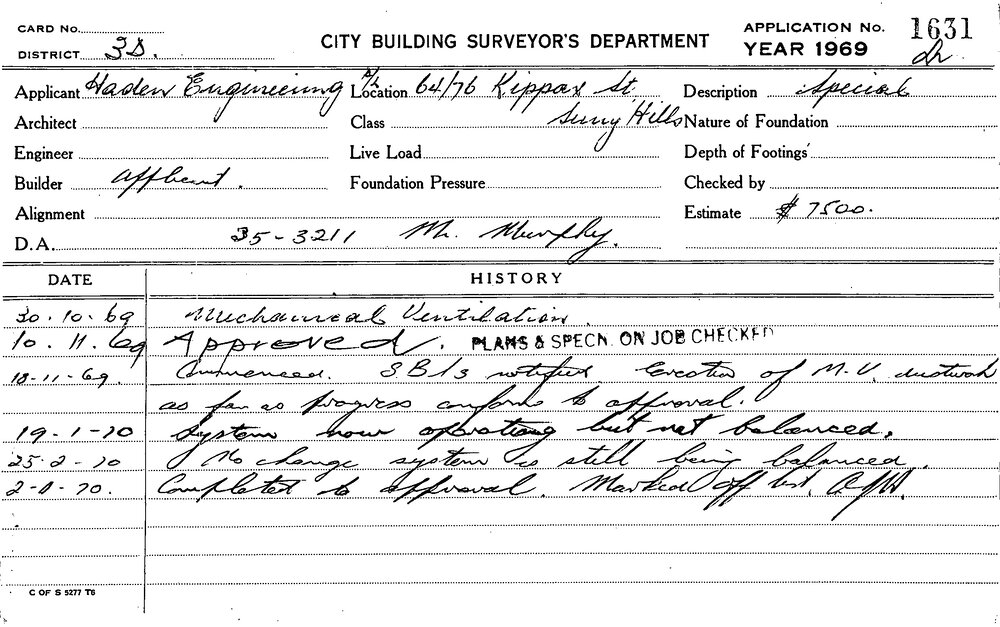 CARD No.
DISTRICT 3D.
CITY BUILDING SURVEYOR'S DEPARTMENT
APPLICATION No. 1631
YEAR 1969
Applicant Haden Engineering P/L Location 64/76 Kippax St. Description Special
Architect Class Surry Hills Nature of Foundation
Engineer Live Load Depth of Footings
Builder applicant. Foundation Pressure Checked by
Alignment Estimate $ 7500.
D.A. 35-3211 Mr. Murphy.
DATE HISTORY
30.10.69 Mechanical Ventilation.
10.11.69 Approved. PLANS & SPECN. ON JOB CHECKED
18-11-69. Commenced. notified Erection of M.V. ductwork
as far as progress conforms to approval.
19-1-70 System now operating but not balanced.
25-2-70 No change system is still being balanced.
70. Completed to approval. Marked off list.
C OF S 5277 T6